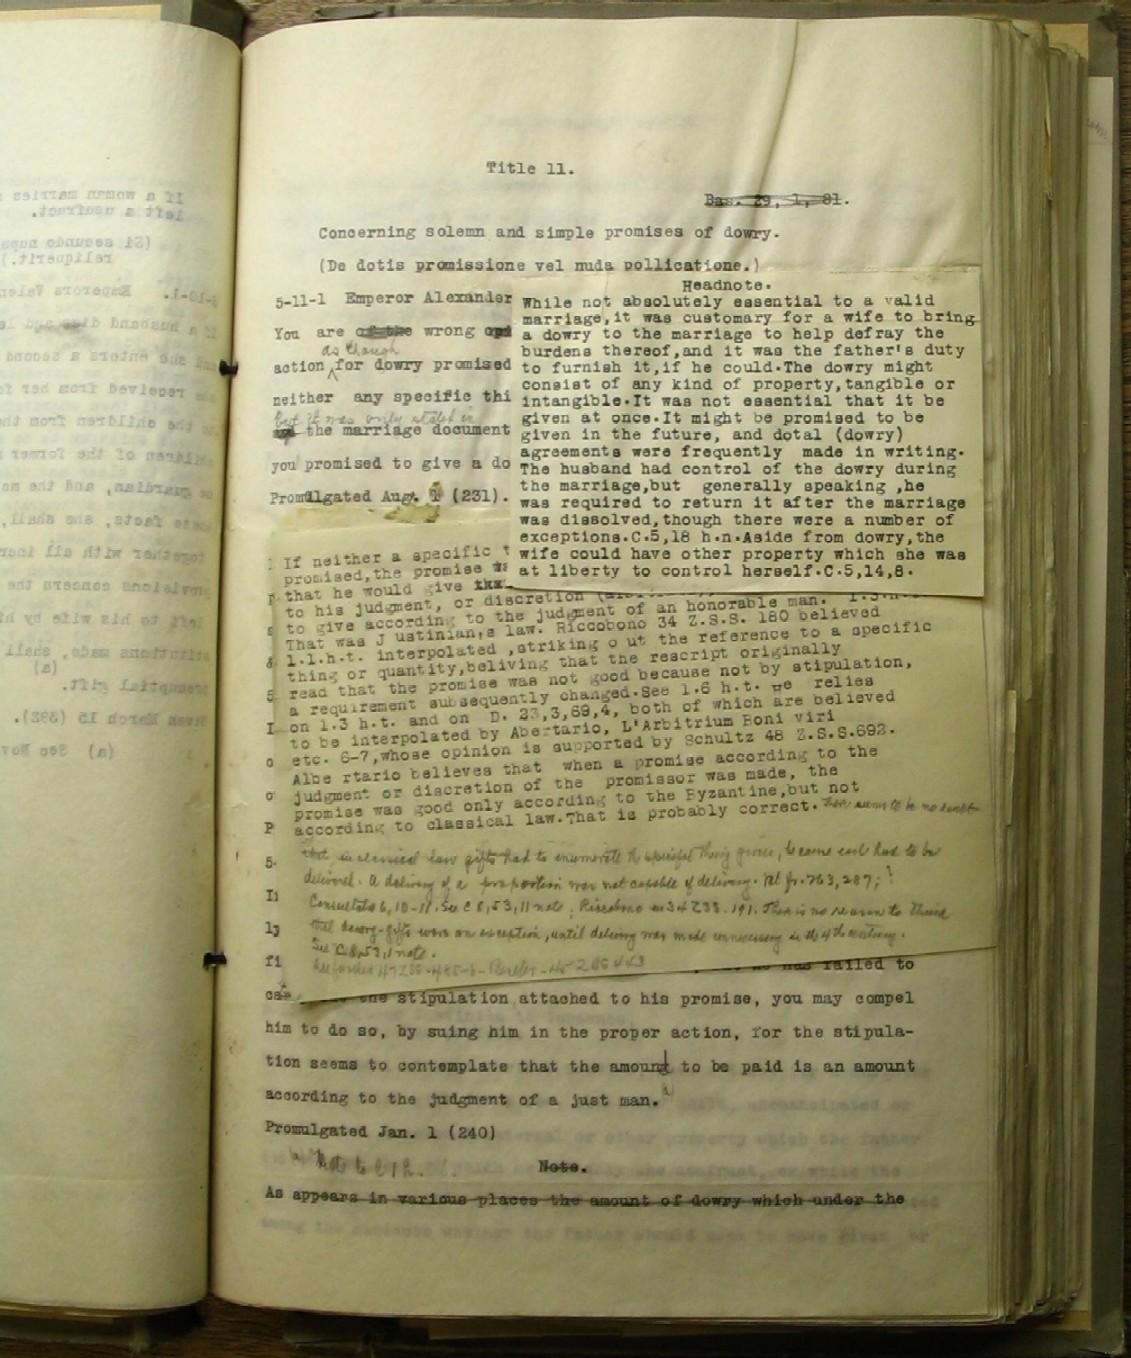 Title 11.
Bas. 29, 1, 81.
Concerning solemn and simple promises of dowry.
(De dotis promissione vel nuda pollicatione.)
5-11-1 Emperor Alexander
You are of the wrong
as though
action for dowry promised
neither any specific thi
but it was only stated in
the marriage document
you promised to give a do
Promulgated Aug. 1 (231).
Headnote.
While not absolutely essential to a valid
marriage,it was customary for a wife to bring
a dowry to the marriage to help defray the
burdens thereof,and it was the father's duty
to furnish it,if he could.The dowry might
consist of any kind of property,tangible or
intangible.It was not essential that it be
given at once.It might be promised to be
given in the future, and dotal (dowry)
agreements were frequently made in writing.
The husband had control of the dowry during
the marriage,but generally speaking ,he
was required to return it after the marriage
was dissolved,though there were a number of
exceptions.C.5,18 h.n.Aside from dowry,the
wife could have other property which she was
at liberty to control herself.C.5,14,8.
If neither a specific
promised,the promise
that he would give
to his judgment, or discretion
to give according to the judgment of an honorable man.
That was J ustinian,s law. Riccobono 34 Z.S.S. 180 believed
1.1.h.t. interpolated ,striking o ut the reference to a specific
thing or quantity,beliving that the rescript originally
read that the promise was not good because not by stipulation,
a requirement subsequently changed.See 1.6 h.t. He relies
on 1.3 h.t. and on D. 23,3,69,4, both of which are believed
to be interpolated by Abertario, L'Arbitrium Boni viri
etc. 6-7,whose opinion is supported by Schultz 48 Z.S.S.692.
Albe rtario believes that when a promise according to the
judgment or discretion of the promissor was made, the
promise was good only according to the Byzantine,but not
according to classical law.That is probably correct. There seems to be no doubt
that in classical law gifts had to enumerate the special thing given, because each had to be
delivered. A delivery of a proportion was not capable of delivery. Vat fr. 263, 287;
Consultatio 6, 10-11. See C 8,53,11 note; Riccobono in 34 ZSS. 191. There is no reason to think
that dowry-gifts were an exception, until delivery was made unnecessary in the 4th century.
See C.8,53,1 note.
has failed to
the stipulation attached to his promise, you may compel
him to do so, by suing him in the proper action, for the stipula-
tion seems to contemplate that the amount to be paid is an amount
according to the judgment of a just man.
Promulgated Jan. 1 (240)
Note.
As appears in various places the amount of dowry which under the